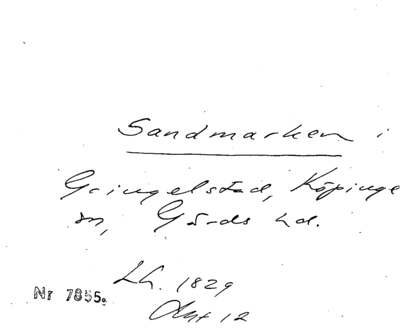 Sandmarken i
Gringelstad, Köpinge
sn, Gärds hd.
LA. 1829
Akt 12
Nr 7855.